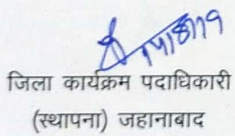 जिला कार्यक्रम पदाधिकारी
(स्थापना) जहानाबाद